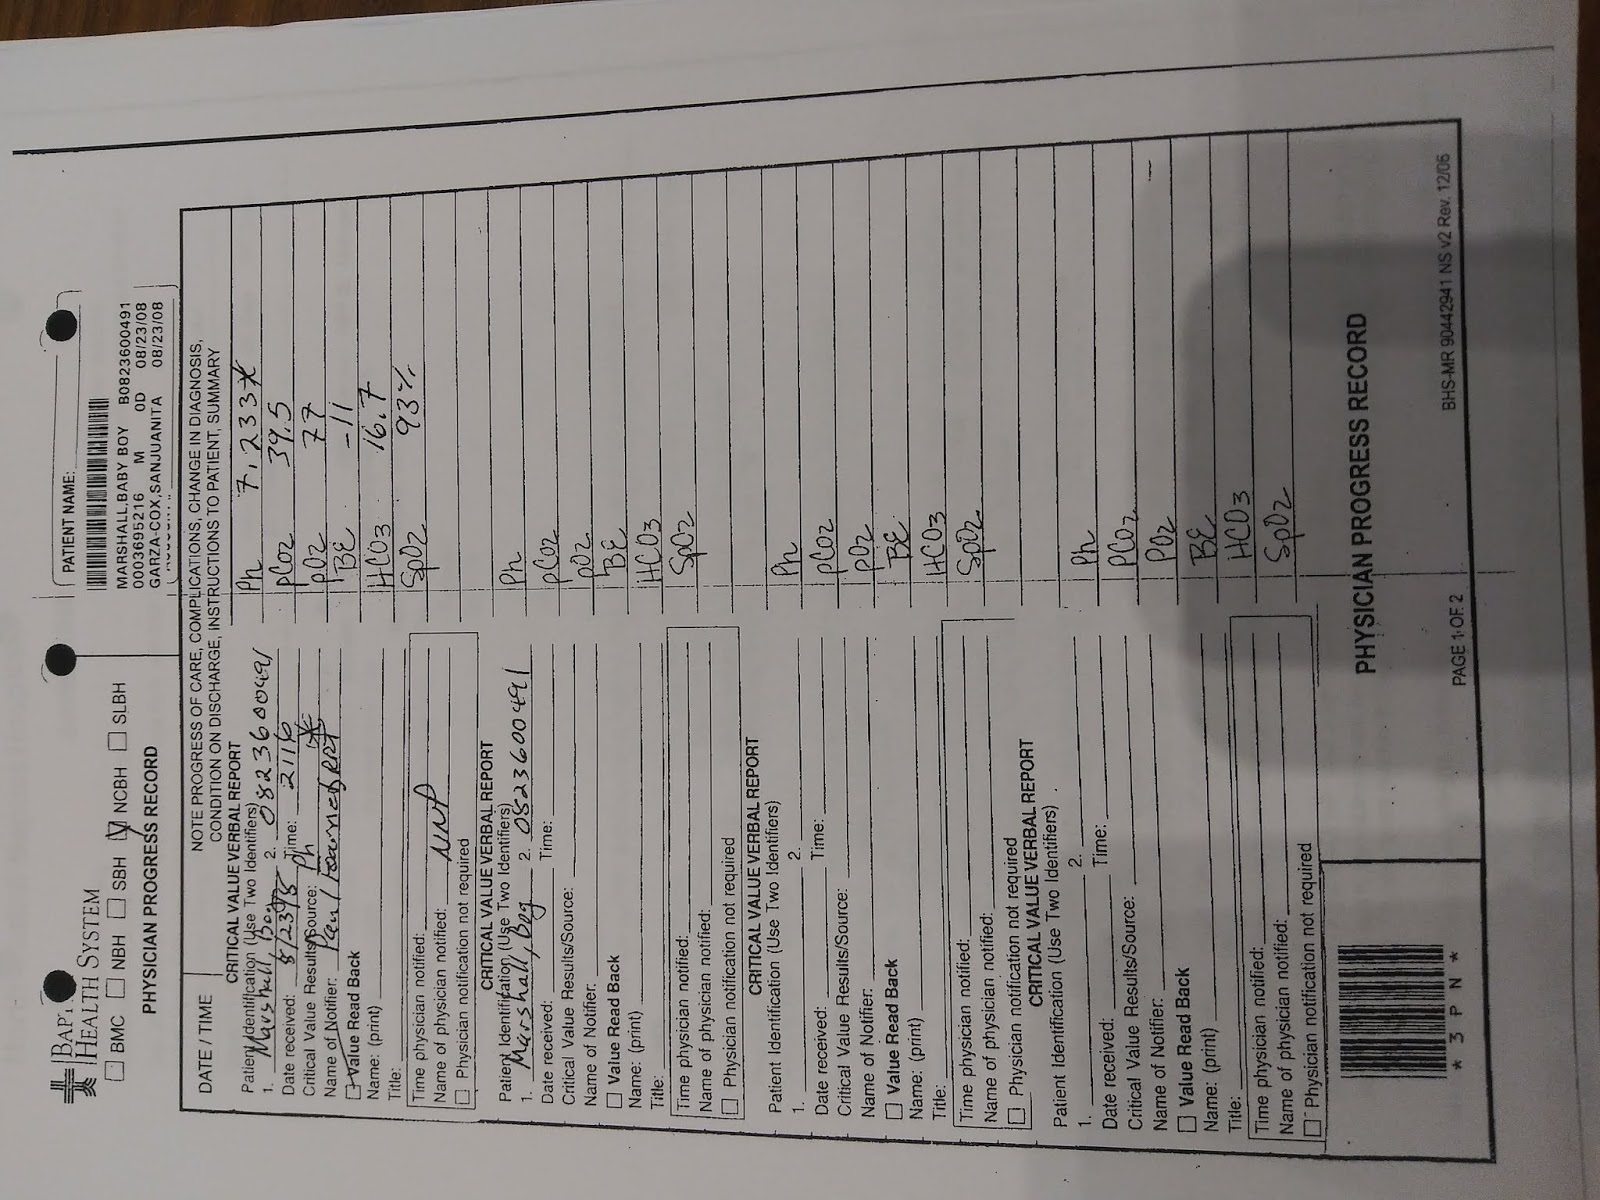 BAPT
HEALTH SYSTEM
☐ BMC ☐ NBH ☐ SBH ☑ NCBH ☐ SLBH
PHYSICIAN PROGRESS RECORD
PATIENT NAME:
MARSHALL,BABY BOY B0823600491
0003695216 M 0D 08/23/08
GARZA-COX,SANJUANITA 08/23/08
DATE / TIME
NOTE PROGRESS OF CARE, COMPLICATIONS, CHANGE IN DIAGNOSIS,
CONDITION ON DISCHARGE, INSTRUCTIONS TO PATIENT, SUMMARY
CRITICAL VALUE VERBAL REPORT
Patient Identification (Use Two Identifiers)
1. Marshall, Boy 2. 0823600491
Date received: 8/23/08 Time: 2116
Critical Value Results/Source: Ph
Name of Notifier: Paul RRT
☑ Value Read Back
Name: (print)
Title:
Time physician notified:
Name of physician notified: NNP
☐ Physician notification not required
Ph 7.233*
pCO2 39.5
pO2 77
BE -11
HCO3 16.7
SpO2 93%
CRITICAL VALUE VERBAL REPORT
Patient Identification (Use Two Identifiers)
1. Marshall, Boy 2. 0823600491
Date received: Time:
Critical Value Results/Source:
Name of Notifier:
☐ Value Read Back
Name: (print)
Title:
Time physician notified:
Name of physician notified:
☐ Physician notification not required
Ph
pCO2
pO2
BE
HCO3
SpO2
CRITICAL VALUE VERBAL REPORT
Patient Identification (Use Two Identifiers)
1. 2.
Date received: Time:
Critical Value Results/Source:
Name of Notifier:
☐ Value Read Back
Name: (print)
Title:
Time physician notified:
Name of physician notified:
☐ Physician notification not required
Ph
pCO2
pO2
BE
HCO3
SpO2
CRITICAL VALUE VERBAL REPORT
Patient Identification (Use Two Identifiers)
1. 2.
Date received: Time:
Critical Value Results/Source:
Name of Notifier:
☐ Value Read Back
Name: (print)
Title:
Time physician notified:
Name of physician notified:
☐ Physician notification not required
Ph
PCO2
PO2
BE
HCO3
SpO2
* 3 P N *
PHYSICIAN PROGRESS RECORD
PAGE 1 OF 2
BHS-MR 90442941 NS v2 Rev. 12/06